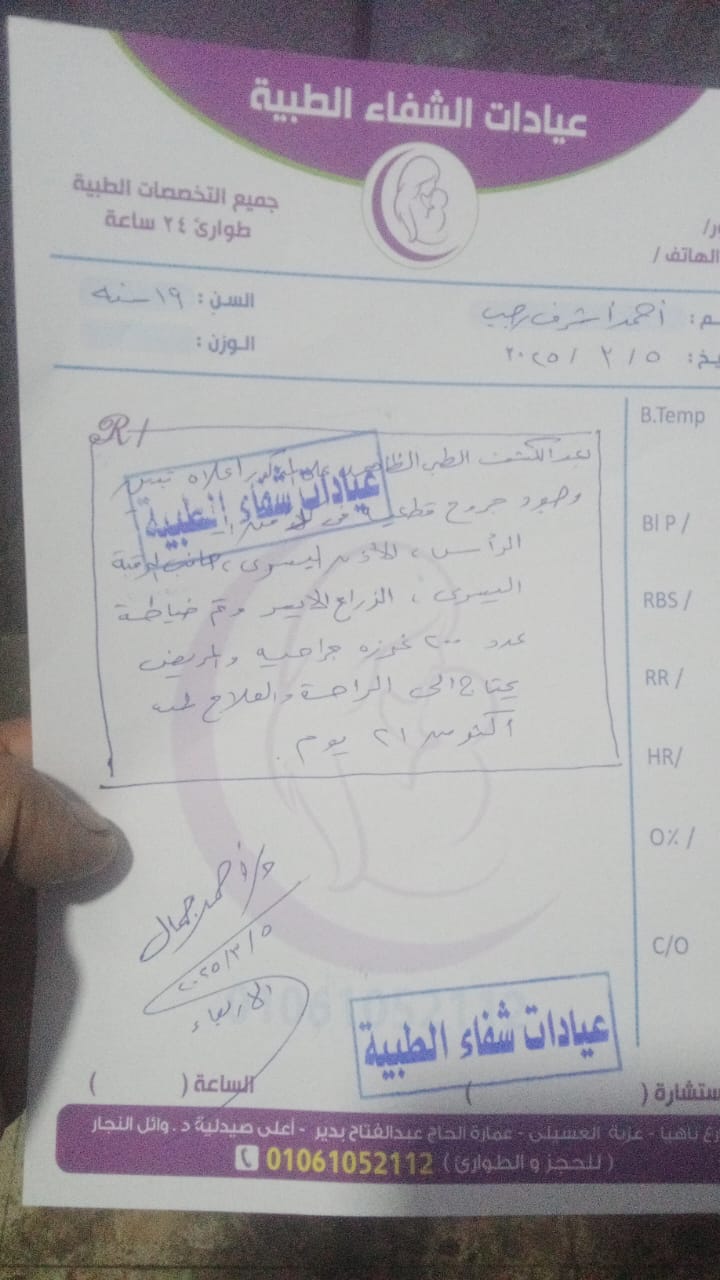 عيادات الشفاء الطبية
جميع التخصصات الطبية
طوارئ ٢٤ ساعة
الهاتف /
أحمد أشرف رجب
السن : ١٩ سنه
٢٠٢٥ / ٣ / ٥
الوزن :
R/
B.Temp
Bl P /
RBS /
RR /
HR/
O٪ /
C/O
بعد الكشف الطبى الظاهرى على المذكور أعلاه تبين
وجود جروح قطعية فى
الرأس ، الأذن اليسرى ، جانب الرقبة
اليسرى ، الزراع الايسر وتم خياطة
عدد ٢٠٠ غرزه جراحيه والمريض
يحتاج الى الراحة والعلاج لمده
أكثر من ٢١ يوم .
عيادات شفاء الطبية
د/ أحمد جمال
٢٠٢٥/٣/٥
الاربعاء
عيادات شفاء الطبية
الساعة ( )
ستشارة ( )
ناهيا - عزبة العسيلى - عمارة الحاج عبدالفتاح بدير - أعلى صيدلية د . وائل النجار
( للحجز و الطوارئ ) 01061052112